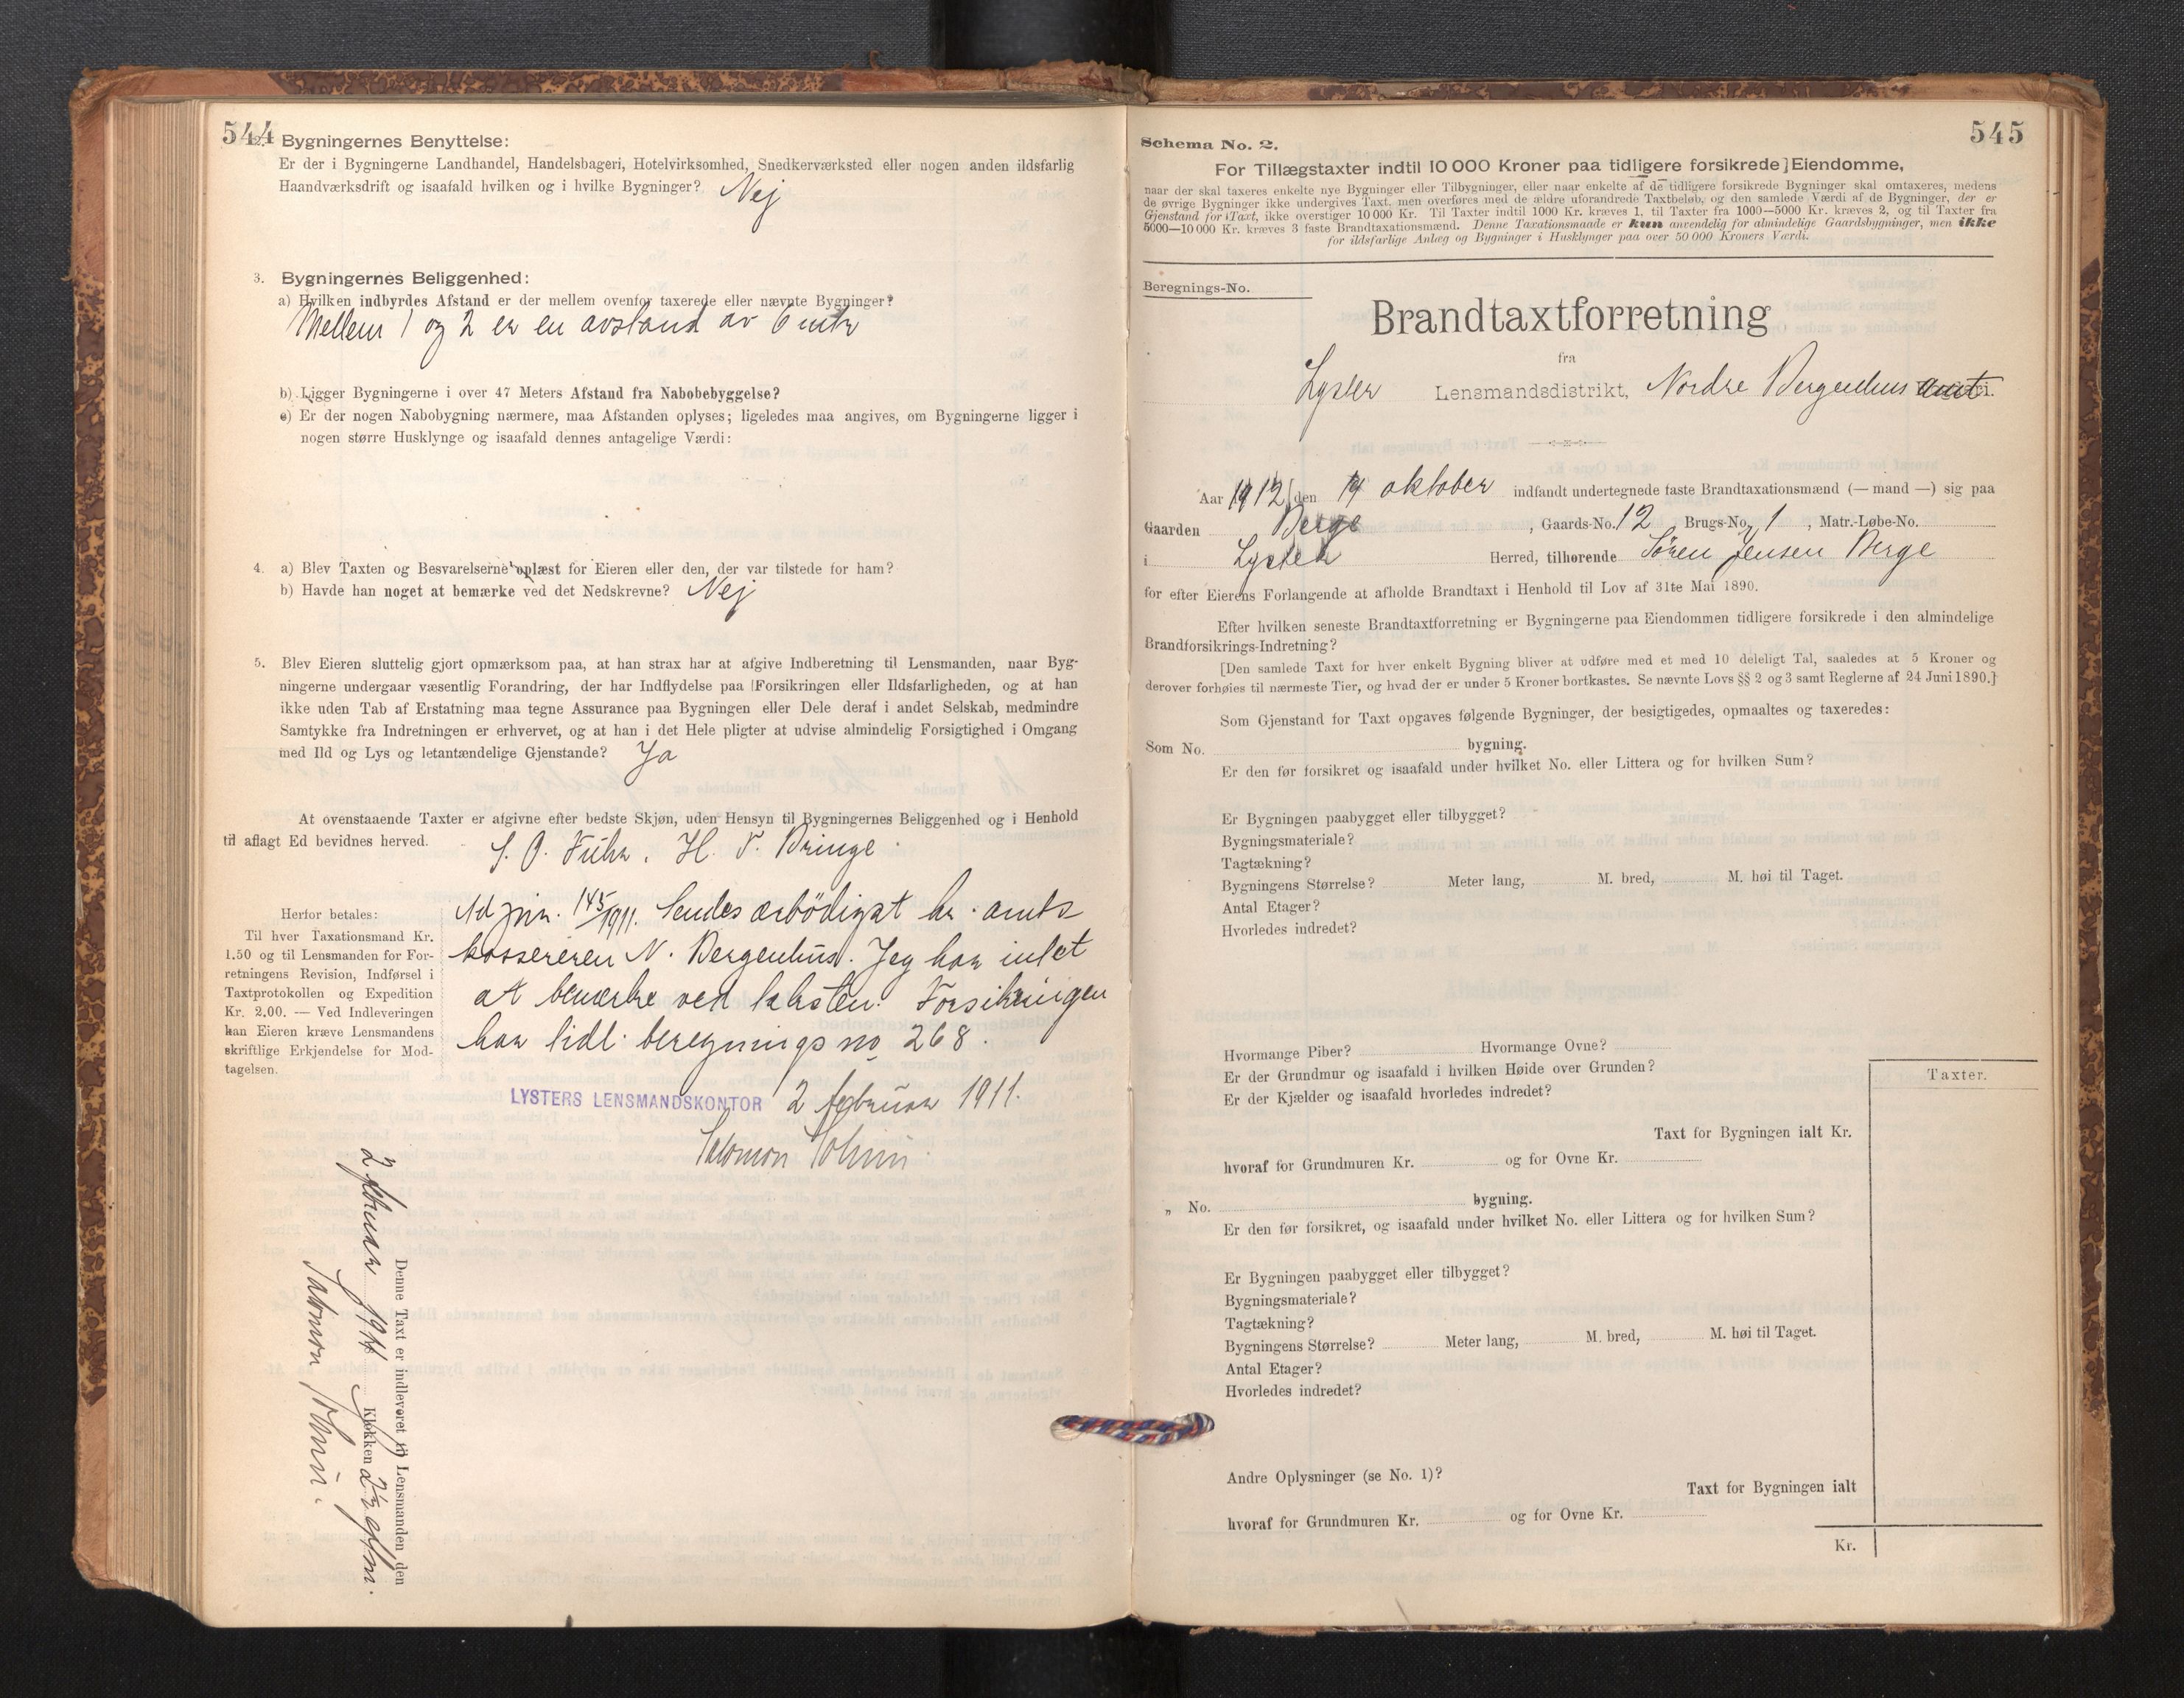 544
2. Bygningernes Benyttelse:
Er der i Bygningerne Landhandel, Handelsbageri, Hotelvirksomhed, Snedkerværksted eller nogen anden ildsfarlig
Haandværksdrift og isaafald hvilken og i hvilke Bygninger? Nej
3. Bygningernes Beliggenhed:
a) Hvilken indbyrdes Afstand er der mellem ovenfor taxerede eller nævnte Bygninger?
Mellem 1 og 2 er en avstand av 6 mtr
b) Ligger Bygningerne i over 47 Meters Afstand fra Nabobebyggelse?
c) Er der nogen Nabobygning nærmere, maa Afstanden oplyses; ligeledes maa angives, om Bygningerne ligger i
nogen større Husklynge og isaafald dennes antagelige Værdi:
4. a) Blev Taxten og Besvarelserne oplæst for Eieren eller den, der var tilstede for ham?
b) Havde han noget at bemærke ved det Nedskrevne? Nej
5. Blev Eieren sluttelig gjort opmærksom paa, at han strax har at afgive Indberetning til Lensmanden, naar Byg-
ningerne undergaar væsentlig Forandring, der har Indflydelse paa Forsikringen eller Ildsfarligheden, og at han
ikke uden Tab af Erstatning maa tegne Assurance paa Bygningen eller Dele deraf i andet Selskab, medmindre
Samtykke fra Indretningen er erhvervet, og at han i det Hele pligter at udvise almindelig Forsigtighed i Omgang
med Ild og Lys og letantændelige Gjenstande? Ja
At ovenstaaende Taxter er afgivne efter bedste Skjøn, uden Hensyn til Bygningernes Beliggenhed og i Henhold
til aflagt Ed bevidnes herved.
S. O. H. T. Bringe.
Herfor betales:
Til hver Taxationsmand Kr.
1.50 og til Lensmanden for For-
retningens Revision, Indførsel i
Taxtprotokollen og Expedition
Kr. 2.00. — Ved Indleveringen
kan Eieren kræve Lensmandens
skriftlige Erkjendelse for Mod-
tagelsen.
145/1911. Sendes ærbödigst hr. amts
kassereren N. Bergenhus. Jeg har intet
at bemærke ved taksten. Forsikringen
har tidl. beregnings no 268.
LYSTERS LENSMANDSKONTOR 2 februar 1911.
Salomon
Denne Taxt er indleveret til Lensmanden den
2 februar 1911 Klokken 2 1/2 efm.
Salomon
545
Schema No. 2.
For Tillægstaxter indtil 10 000 Kroner paa tidligere forsikrede] Eiendomme,
naar der skal taxeres enkelte nye Bygninger eller Tilbygninger, eller naar enkelte af de tidligere forsikrede Bygninger skal omtaxeres, medens
de øvrige Bygninger ikke undergives Taxt, men overføres med de ældre uforandrede Taxtbeløb, og den samlede Værdi af de Bygninger, der er
Gjenstand for Taxt, ikke overstiger 10 000 Kr. Til Taxter indtil 1000 Kr. kræves 1, til Taxter fra 1000—5000 Kr. kræves 2, og til Taxter fra
5000—10 000 Kr. kræves 3 faste Brandtaxationsmænd. Denne Taxationsmaade er kun anvendelig for almindelige Gaardsbygninger, men ikke
for ildsfarlige Anlæg og Bygninger i Husklynger paa over 50 000 Kroners Værdi.
Beregnings-No.
Brandtaxtforretning
fra
Lyster Lensmandsdistrikt, Nordre Bergenhus amt
Aar 1912, den 14 oktober indfandt undertegnede faste Brandtaxationsmænd (— mand —) sig paa
Gaarden Berge, Gaards-No. 12 Brugs-No. 1, Matr.-Løbe-No.
i Lyster Herred, tilhørende Sören Jensen Berge
for efter Eierens Forlangende at afholde Brandtaxt i Henhold til Lov af 31te Mai 1890.
Efter hvilken seneste Brandtaxtforretning er Bygningerne paa Eiendommen tidligere forsikrede i den almindelige
Brandforsikrings-Indretning?
[Den samlede Taxt for hver enkelt Bygning bliver at udføre med et med 10 deleligt Tal, saaledes at 5 Kroner og
derover forhøies til nærmeste Tier, og hvad der er under 5 Kroner bortkastes. Se nævnte Lovs §§ 2 og 3 samt Reglerne af 24 Juni 1890.]
Som Gjenstand for Taxt opgaves følgende Bygninger, der besigtigedes, opmaaltes og taxeredes:
Som No. bygning.
Er den før forsikret og isaafald under hvilket No. eller Littera og for hvilken Sum?
Er Bygningen paabygget eller tilbygget?
Bygningsmateriale?
Tagtækning?
Bygningens Størrelse? Meter lang, M. bred, M. høi til Taget.
Antal Etager?
Hvorledes indredet?
Hvormange Piber? Hvormange Ovne?
Er der Grundmur og isaafald i hvilken Høide over Grunden?
Er der Kjælder og isaafald hvorledes indredet?
Taxter.
Taxt for Bygningen ialt Kr.
hvoraf for Grundmuren Kr. og for Ovne Kr.
„ No. bygning.
Er den før forsikret, og isaafald under hvilket No. eller Littera og for hvilken Sum?
Er Bygningen paabygget eller tilbygget?
Bygningsmateriale?
Tagtækning?
Bygningens Størrelse? Meter lang, M. bred, M. høi til Taget.
Antal Etager?
Hvorledes indredet?
Andre Oplysninger (se No. 1)?
Taxt for Bygningen ialt
hvoraf for Grundmuren Kr. og for Ovne Kr.
Kr.